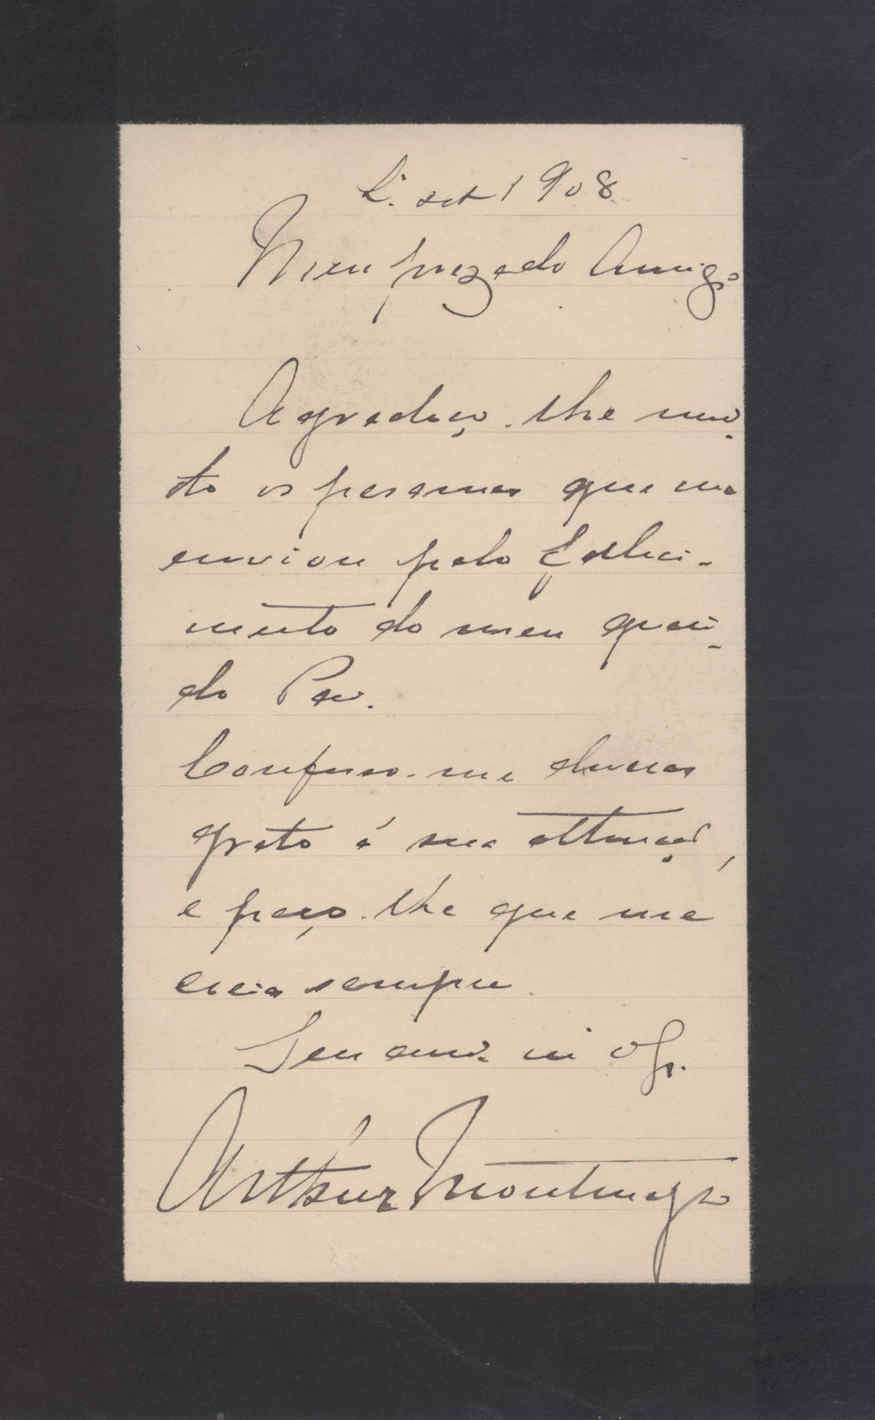 L. set 1908
Meu prezado Amigo
Agradeço-lhe mui-
to os pesames que me
enviou pelo falleci-
mento do meu queri-
do Pae.
Confesso-me deveras
grato á sua attenção,
e peço-lhe que me
creia sempre
Seu amo. mi obr.
Arthur Montenegro